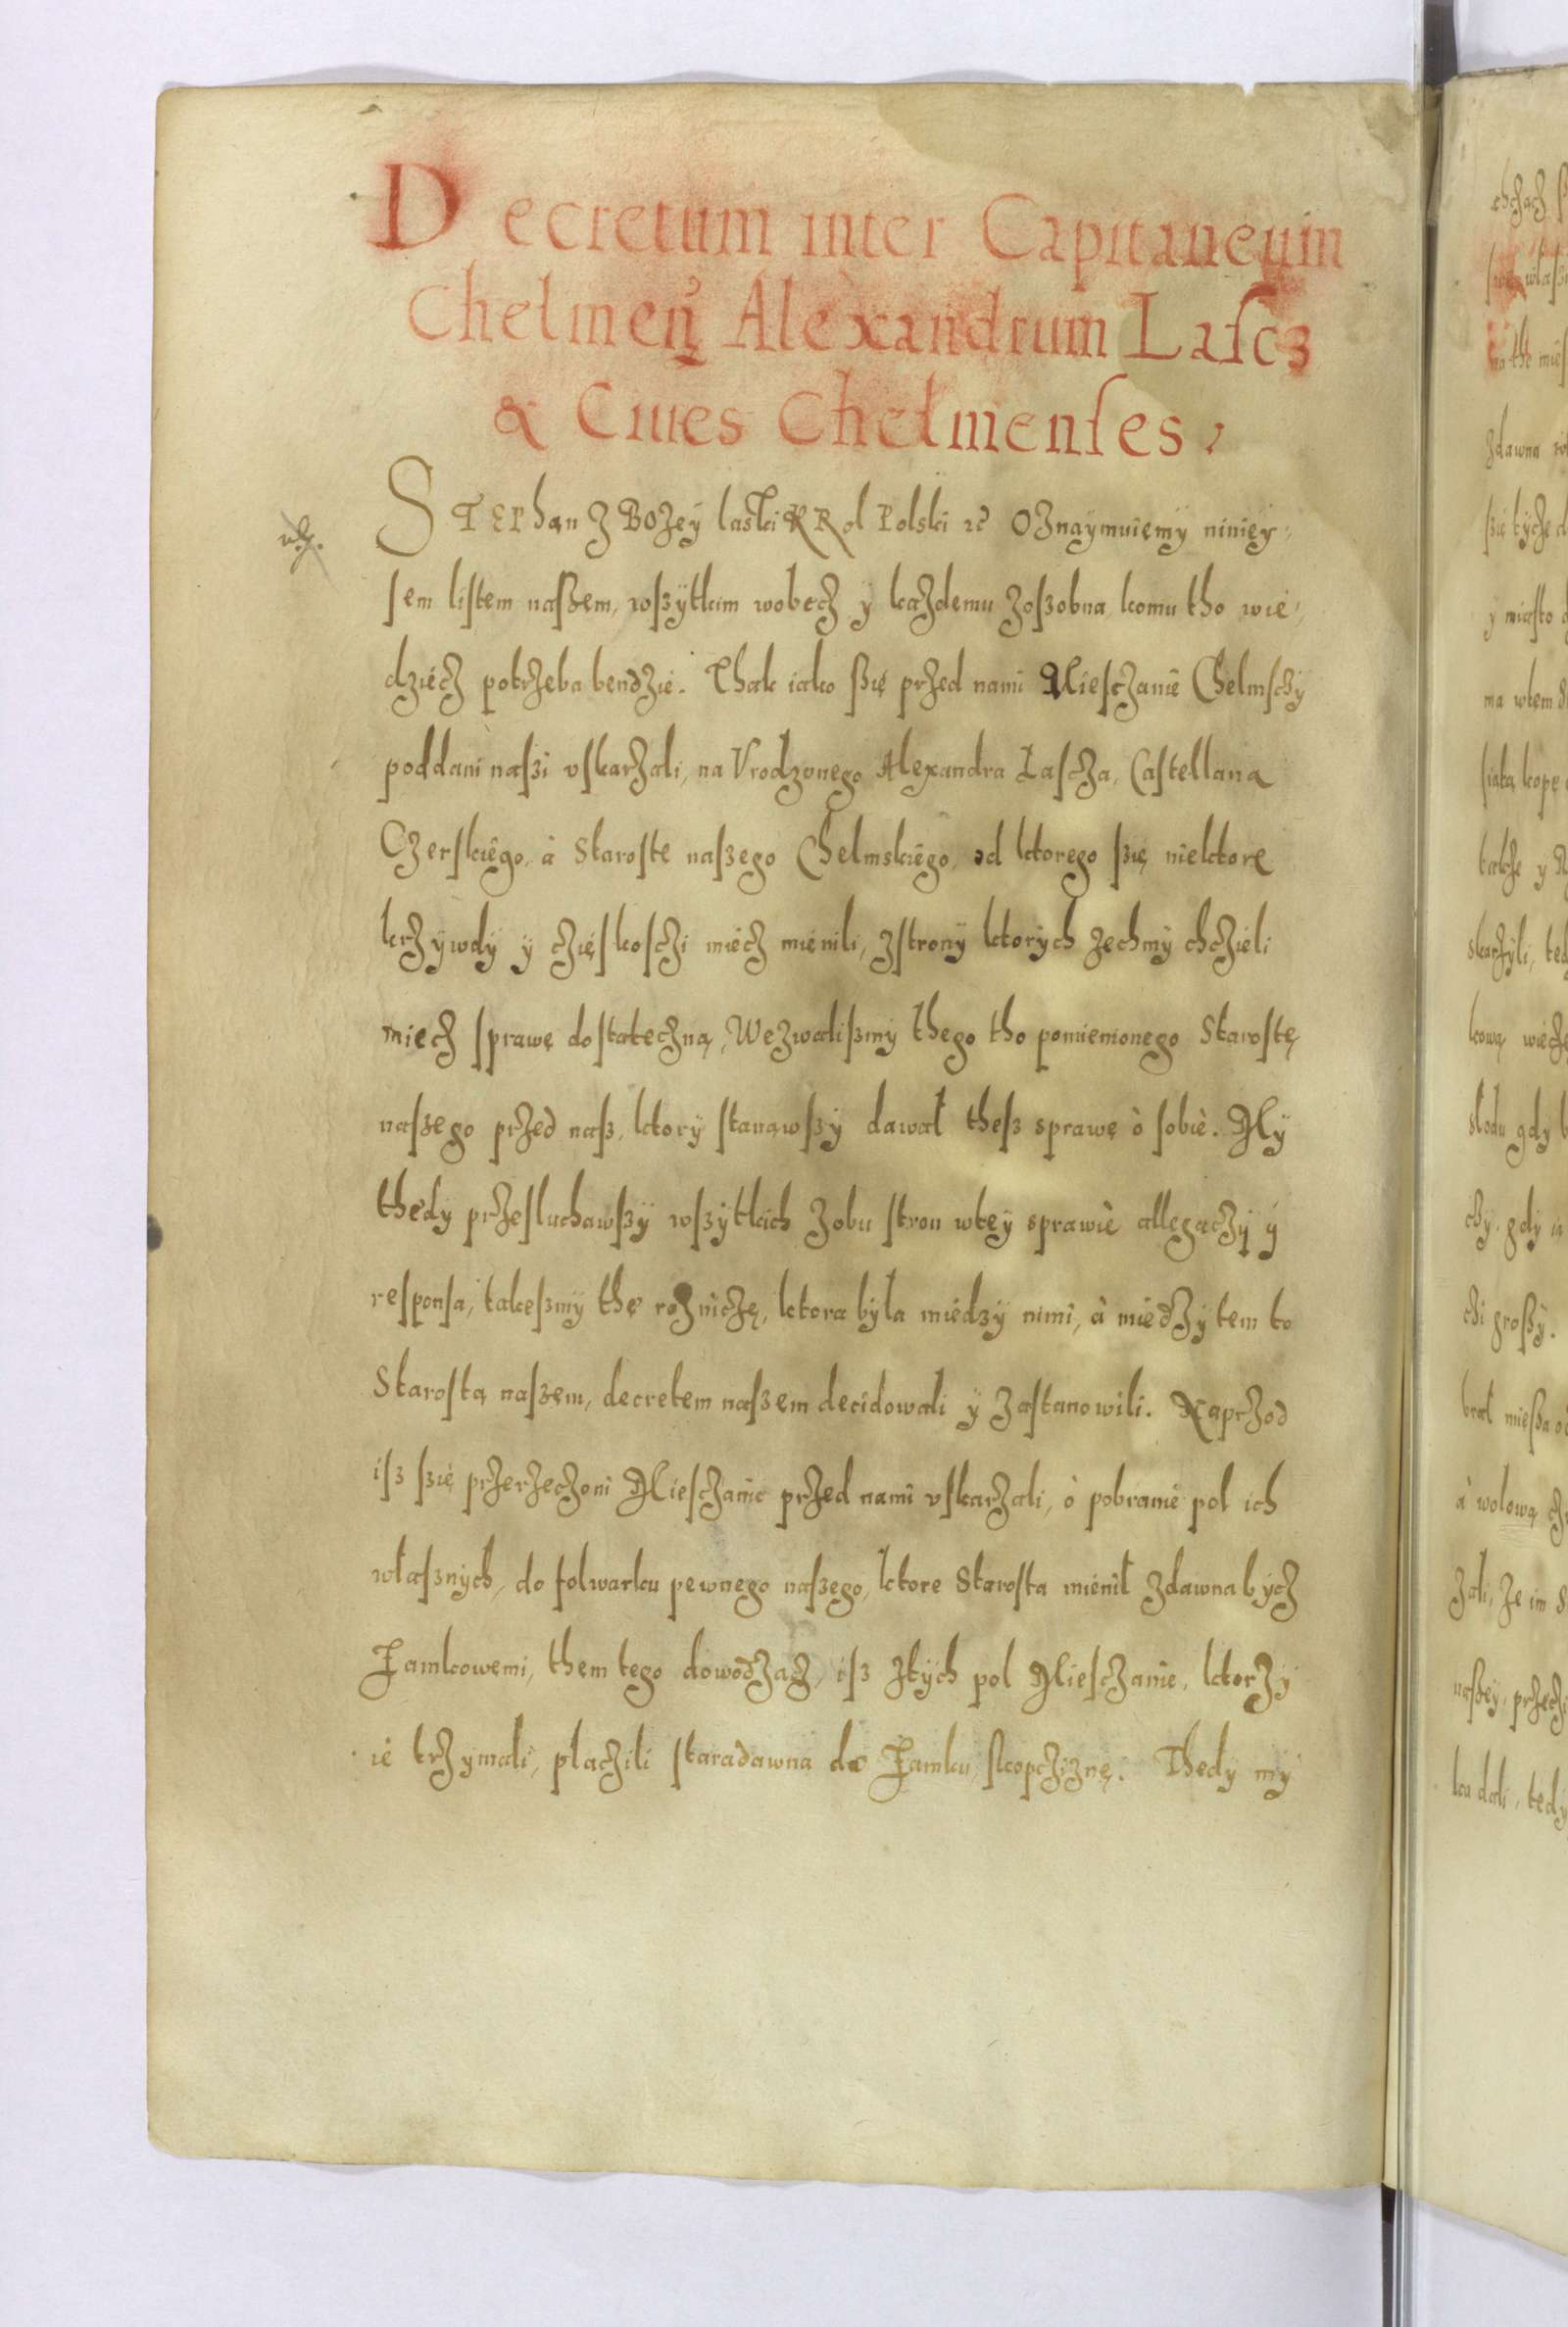 Decretum inter Capitaneum
Chelmeñ Alexandrum Lascz
& Ciues Chelmenses,
STEPhan Z BOZeÿ laski KRol Polski ꝛc̃ OZnaÿmuiemÿ niniéÿ,
sem listem naszem, wszÿtkim wobecz ÿ kazdemu zoszobna komu tho wié,
dziécz potrzeba bendzié. Thak iako szię przed nami Miesczanié Chelmsczÿ
poddani naszi vskarzali, na Vrodzonego Alexandra Lascza, Castellana
Czerskiégo, à Staroste naszego Chelmskiégo, od ktorego szię niektore
krzÿwdÿ ÿ cziéskosczi miécz miénili, zstronÿ ktorÿch zechmÿ chcziéli
miecz sprawę dostateczną, Wezwaliszmÿ thego tho pomienionego Starostę
naszego przed nasz, ktorÿ stanąwszÿ dawał thesz sprawę ò sobié. Mÿ
thedÿ przesluchawszÿ wszÿtkich zobu stron wteÿ sprawié allegaczÿ ÿ
responsa, takeszmÿ thę rozniczę, ktora bÿla miédzÿ nimi, à miédzÿ tem to
Starostą naszem, decretem naszem decidowali ÿ zastanowili. Naprzod
isz szię przerzeczoni Miesczanié przed nami vskarzali, ò pobranié pol ich
własznÿch, do folwarku pewnego naszego, ktore Starosta miénił zdawna bÿcz
Zamkowemi, them tego dowodzącz, isz ztÿch pol Miesczanié, ktorzÿ
ié trzÿmali, placzili staradawna do Zamku skopcziznę. Thedÿ mÿ